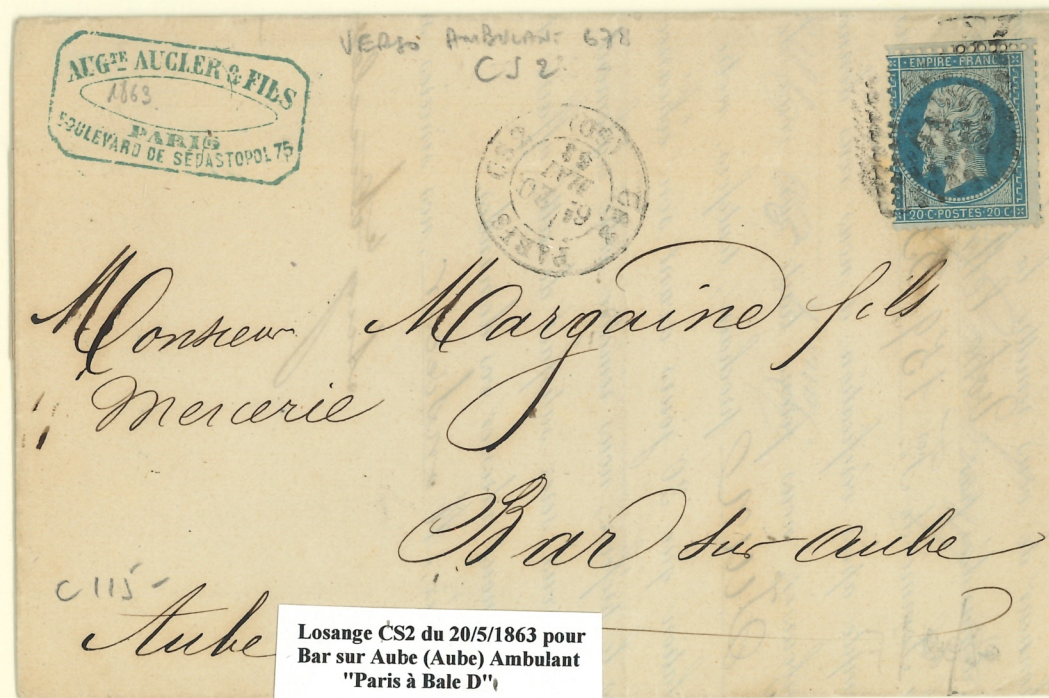 VERSO AMBULANT 678
CS 2
AUGTE AUGLER & FILS
1863
PARIS
BOULEVARD DE SÉBASTOPOL 75
PARIS CS2 (60)
20
MAI
63
EMPIRE FRANC
20 C POSTES 20 C
Monsieur Margaine fils
Mercerie
Bar sur Aube
C 115-
Aube
Losange CS2 du 20/5/1863 pour
Bar sur Aube (Aube) Ambulant
"Paris à Bale D"